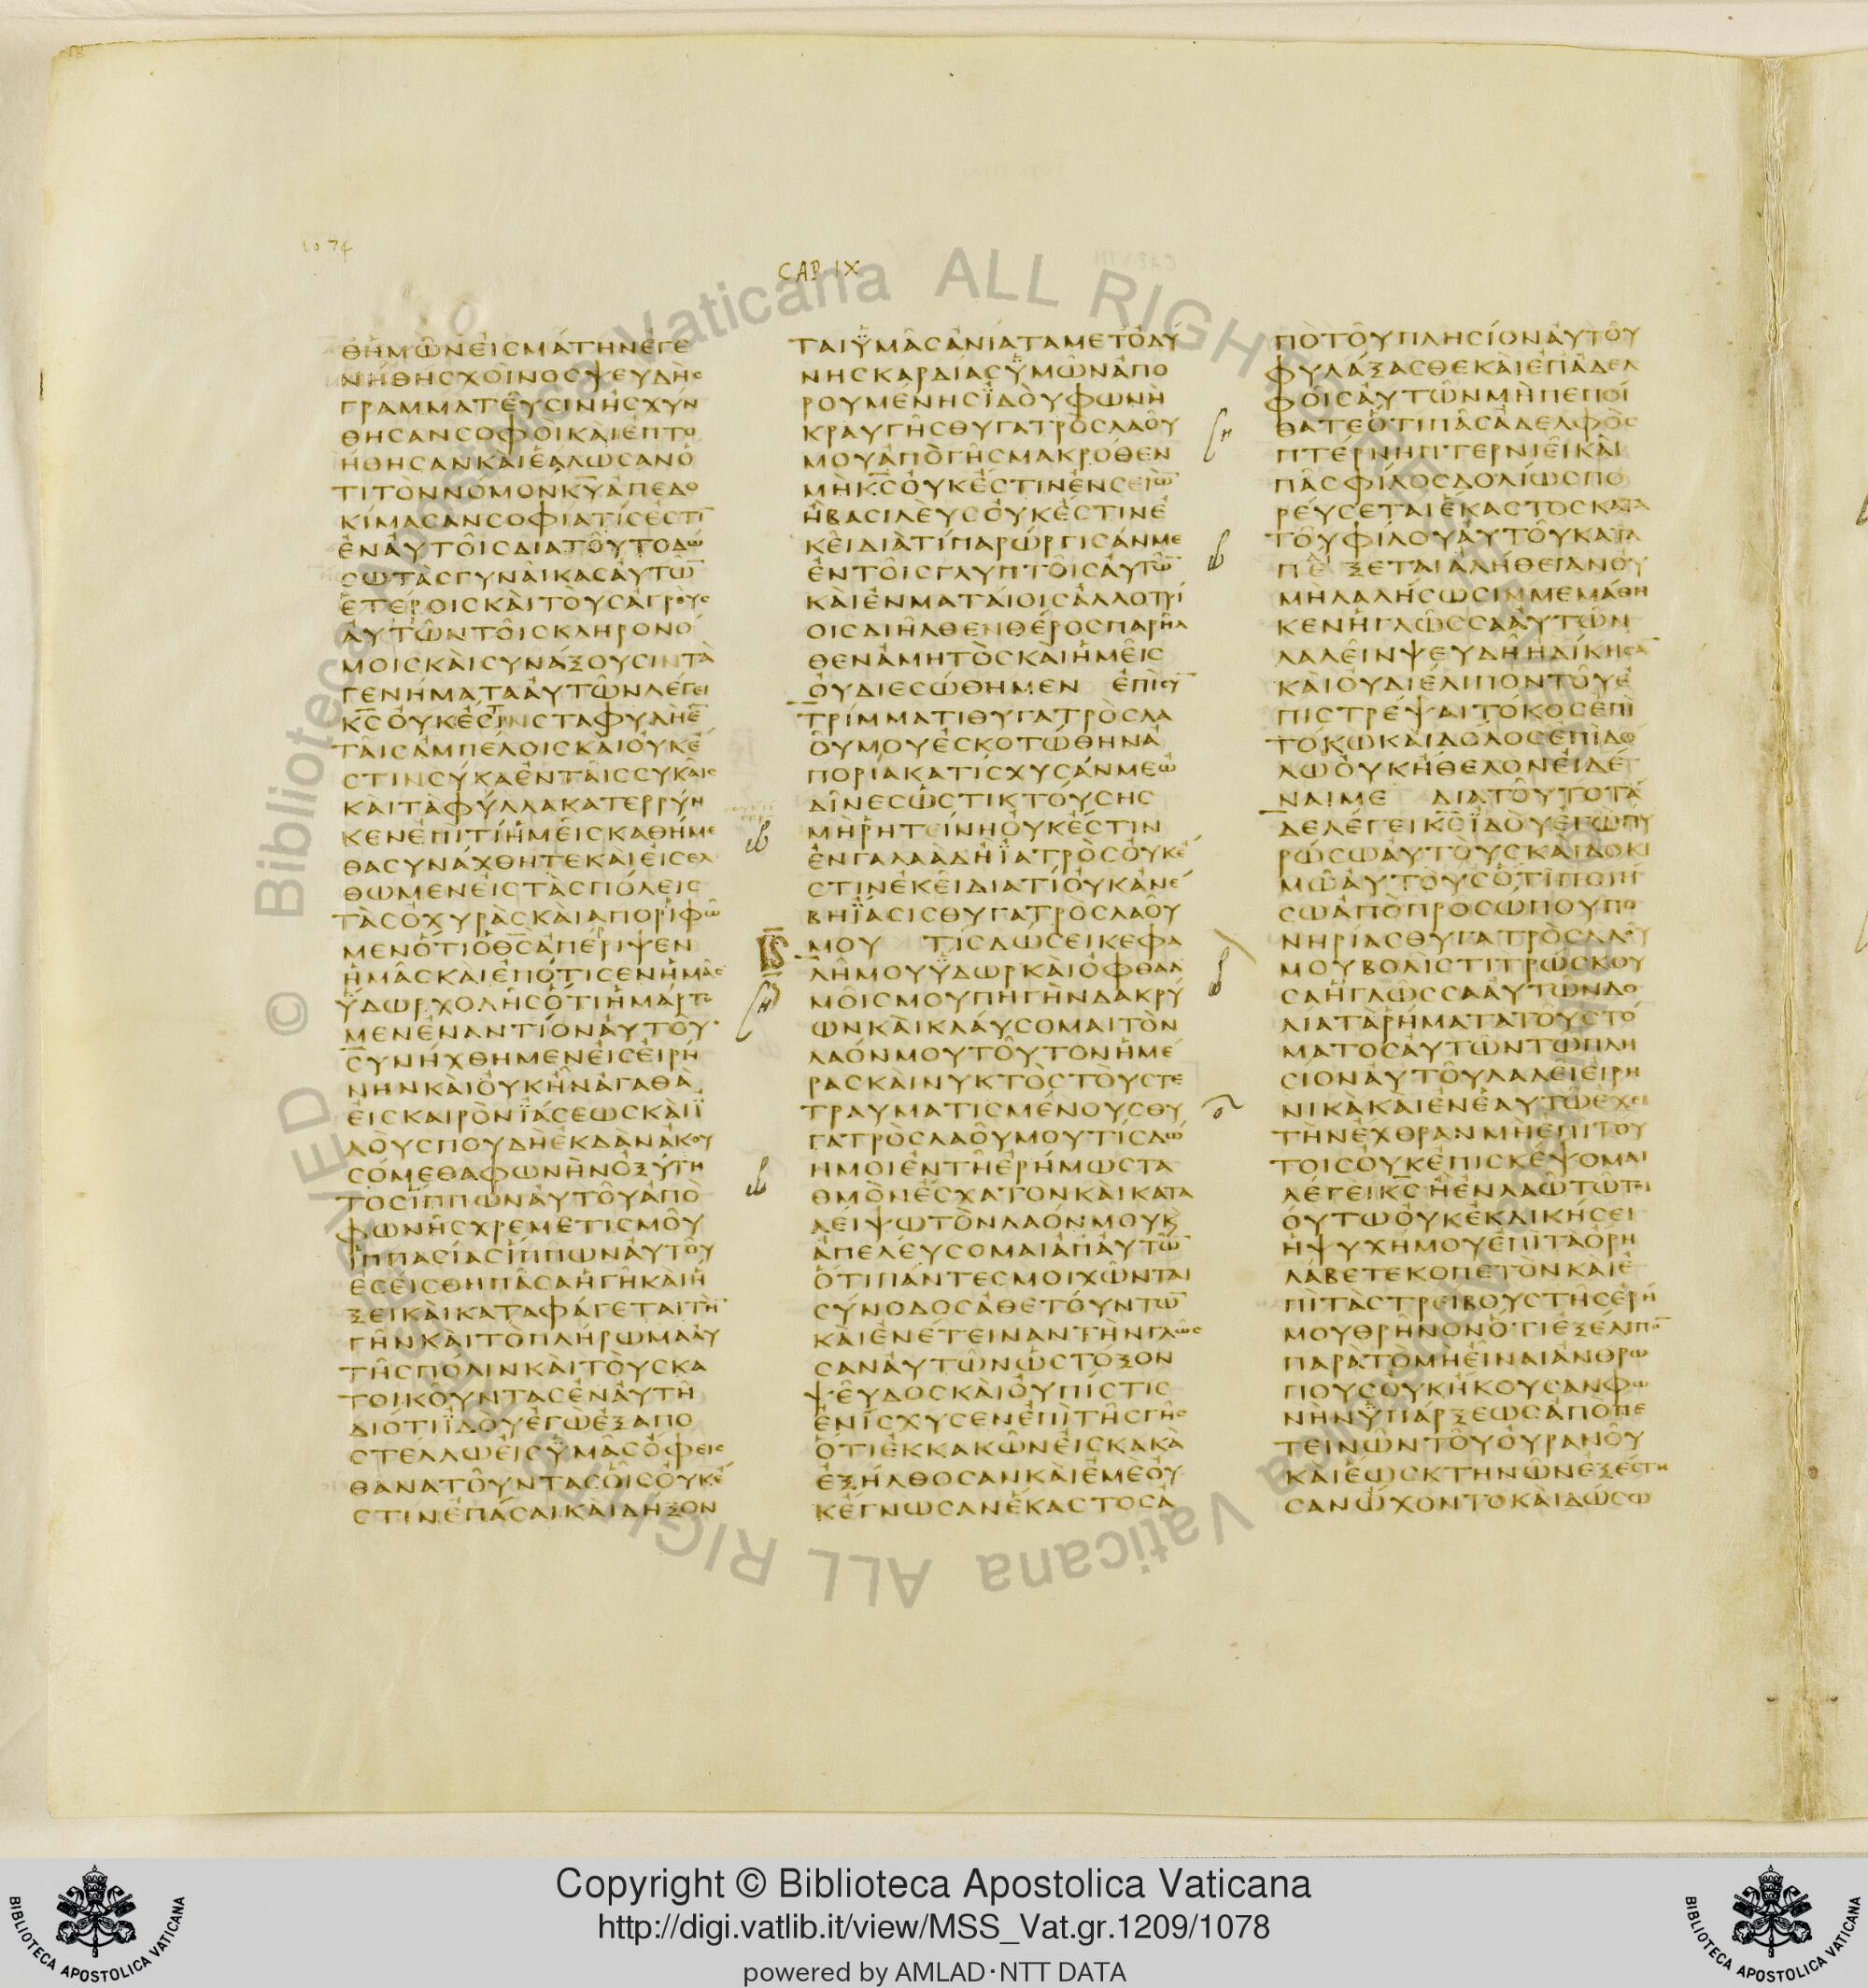 1074
CAP IX
ΘΗΜΩΝΕΙΣΜΑΤΗΝΕΓΕ
ΝΗΘΗΣΧΟΙΝΟΣΨΕΥΔΗΣ
ΓΡΑΜΜΑΤΕΥΣΙΝΗΣΧΥΝ
ΘΗΣΑΝΣΟΦΟΙΚΑΙΕΠΤΟ
ΗΘΗΣΑΝΚΑΙΕΑΛΩΣΑΝΟ
ΤΙΤΟΝΝΟΜΟΝΚΥΑΠΕΔΟ
ΚΙΜΑΣΑΝΣΟΦΙΑΤΙΣΕΣΤΙ
ΕΝΑΥΤΟΙΣΔΙΑΤΟΥΤΟΔΩ
ΣΩΤΑΣΓΥΝΑΙΚΑΣΑΥΤΩ
ΕΤΕΡΟΙΣΚΑΙΤΟΥΣΑΓΡΟΥΣ
ΑΥΤΩΝΤΟΙΣΚΛΗΡΟΝΟ
ΜΟΙΣΚΑΙΣΥΝΑΞΟΥΣΙΝΤΑ
ΓΕΝΗΜΑΤΑΑΥΤΩΝΛΕΓΕΙ
ΚΣΟΥΚΕΣΤΙΝΣΤΑΦΥΛΗΕ
ΤΑΙΣΑΜΠΕΛΟΙΣΚΑΙΟΥΚΕ
ΣΤΙΝΣΥΚΑΕΝΤΑΙΣΣΥΚΑΙΣ
ΚΑΙΤΑΦΥΛΛΑΚΑΤΕΡΡΥΗ
ΚΕΝΕΠΙΤΙΗΜΕΙΣΚΑΘΗΜΕ
ΘΑΣΥΝΑΧΘΗΤΕΚΑΙΕΙΣΕΛ
ΘΩΜΕΝΕΙΣΤΑΣΠΟΛΕΙΣ
ΤΑΣΟΧΥΡΑΣΚΑΙΑΠΟΡΙΦΩ
ΜΕΝΟΤΙΟΘΣΑΠΕΡΙΨΕΝ
ΗΜΑΣΚΑΙΕΠΟΤΙΣΕΝΗΜΑΣ
ΫΔΩΡΧΟΛΗΣΟΤΙΗΜΑΡΤΟ
ΜΕΝΕΝΑΝΤΙΟΝΑΥΤΟΥ
ΣΥΝΗΧΘΗΜΕΝΕΙΣΕΙΡΗ
ΝΗΝΚΑΙΟΥΚΗΝΑΓΑΘΑ
ΕΙΣΚΑΙΡΟΝΪΑΣΕΩΣΚΑΙΪ
ΔΟΥΣΠΟΥΔΗΕΚΔΑΝΑΚΟΥ
ΣΟΜΕΘΑΦΩΝΗΝΟΞΥΤΗ
ΤΟΣΪΠΠΩΝΑΥΤΟΥΑΠΟ
ΦΩΝΗΣΧΡΕΜΕΤΙΣΜΟΥ
ΪΠΠΑΣΙΑΣΪΠΠΩΝΑΥΤΟΥ
ΕΣΕΙΣΘΗΠΑΣΑΗΓΗΚΑΙΗ
ΞΕΙΚΑΙΚΑΤΑΦΑΓΕΤΑΙΤΗ
ΓΗΝΚΑΙΤΟΠΛΗΡΩΜΑΑΥ
ΤΗΣΠΟΛΙΝΚΑΙΤΟΥΣΚΑ
ΤΟΙΚΟΥΝΤΑΣΕΝΑΥΤΗ
ΔΙΟΤΙΪΔΟΥΕΓΩΕΞΑΠΟ
ΣΤΕΛΛΩΕΙΣΫΜΑΣΟΦΕΙΣ
ΘΑΝΑΤΟΥΝΤΑΣΟΙΣΟΥΚΕ
ΣΤΙΝΕΠΑΣΑΙΚΑΙΔΗΞΟΝ
ΤΑΙΫΜΑΣΑΝΙΑΤΑΜΕΤΟΔΥ
ΝΗΣΚΑΡΔΙΑΣΫΜΩΝΑΠΟ
ΡΟΥΜΕΝΗΣΪΔΟΥΦΩΝΗ
ΚΡΑΥΓΗΣΘΥΓΑΤΡΟΣΛΑΟΥ
ΜΟΥΑΠΟΓΗΣΜΑΚΡΟΘΕΝ
ΜΗΚΣΟΥΚΕΣΤΙΝΕΝΣΕΙΩ
ΗΒΑΣΙΛΕΥΣΟΥΚΕΣΤΙΝΕ
ΚΕΙΔΙΑΤΙΠΑΡΩΡΓΙΣΑΝΜΕ
ΕΝΤΟΙΣΓΛΥΠΤΟΙΣΑΥΤΩ
ΚΑΙΕΝΜΑΤΑΙΟΙΣΑΛΛΟΤΡΙ
ΟΙΣΔΙΗΛΘΕΝΘΕΡΟΣΠΑΡΗΛ
ΘΕΝΑΜΗΤΟΣΚΑΙΗΜΕΙΣ
ΟΥΔΙΕΣΩΘΗΜΕΝ ΕΠΙΣΥ
ΤΡΙΜΜΑΤΙΘΥΓΑΤΡΟΣΛΑ
ΟΥΜΟΥΕΣΚΟΤΩΘΗΝΑ
ΠΟΡΙΑΚΑΤΙΣΧΥΣΑΝΜΕΩ
ΔΙΝΕΣΩΣΤΙΚΤΟΥΣΗΣ
ΜΗΡΗΤΕΙΝΗΟΥΚΕΣΤΙΝ
ΕΝΓΑΛΑΑΔΗΪΑΤΡΟΣΟΥΚΕ
ΣΤΙΝΕΚΕΙΔΙΑΤΙΟΥΚΑΝΕ
ΒΗΪΑΣΙΣΘΥΓΑΤΡΟΣΛΑΟΥ
ΜΟΥ ΤΙΣΔΩΣΕΙΚΕΦΑ
ΛΗΜΟΥΫΔΩΡΚΑΙΟΦΘΑΛ
ΜΟΙΣΜΟΥΠΗΓΗΝΔΑΚΡΥ
ΩΝΚΑΙΚΛΑΥΣΟΜΑΙΤΟΝ
ΛΑΟΝΜΟΥΤΟΥΤΟΝΗΜΕ
ΡΑΣΚΑΙΝΥΚΤΟΣΤΟΥΣΤΕ
ΤΡΑΥΜΑΤΙΣΜΕΝΟΥΣΘΥ
ΓΑΤΡΟΣΛΑΟΥΜΟΥΤΙΣΔΩ
ΗΜΟΙΕΝΤΗΕΡΗΜΩΣΤΑ
ΘΜΟΝΕΣΧΑΤΟΝΚΑΙΚΑΤΑ
ΛΕΙΨΩΤΟΝΛΑΟΝΜΟΥΚ
ΑΠΕΛΕΥΣΟΜΑΙΑΠΑΥΤΩ
ΟΤΙΠΑΝΤΕΣΜΟΙΧΩΝΤΑΙ
ΣΥΝΟΔΟΣΑΘΕΤΟΥΝΤΩ
ΚΑΙΕΝΕΤΕΙΝΑΝΤΗΝΓΛΩΣ
ΣΑΝΑΥΤΩΝΩΣΤΟΞΟΝ
ΨΕΥΔΟΣΚΑΙΟΥΠΙΣΤΙΣ
ΕΝΙΣΧΥΣΕΝΕΠΙΤΗΣΓΗΣ
ΟΤΙΕΚΚΑΚΩΝΕΙΣΚΑΚΑ
ΕΞΗΛΘΟΣΑΝΚΑΙΕΜΕΟΥ
ΚΕΓΝΩΣΑΝΕΚΑΣΤΟΣΑ
ΠΟΤΟΥΠΛΗΣΙΟΝΑΥΤΟΥ
ΦΥΛΑΞΑΣΘΕΚΑΙΕΠΑΔΕΛ
ΦΟΙΣΑΥΤΩΝΜΗΠΕΠΟΙ
ΘΑΤΕΟΤΙΠΑΣΑΔΕΛΦΟΣ
ΠΤΕΡΝΗΠΤΕΡΝΙΕΙΚΑΙ
ΠΑΣΦΙΛΟΣΔΟΛΙΩΣΠΟ
ΡΕΥΣΕΤΑΙΕΚΑΣΤΟΣΚΑΤΑ
ΤΟΥΦΙΛΟΥΑΥΤΟΥΚΑΤΑ
ΠΕ ΞΕΤΑΙΑΛΗΘΕΙΑΝΟΥ
ΜΗΛΑΛΗΣΩΣΙΝΜΕΜΑΘΗ
ΚΕΝΗΓΛΩΣΣΑΑΥΤΩΝ
ΛΑΛΕΙΝΨΕΥΔΗΗΔΙΚΗΣΑ
ΚΑΙΟΥΔΙΕΛΙΠΟΝΤΟΥΕ
ΠΙΣΤΡΕΨΑΙΤΟΚΟΣΕΠΙ
ΤΟΚΩΚΑΙΔΟΛΟΣΕΠΙΔΟ
ΛΩΟΥΚΗΘΕΛΟΝΕΙΔΕ
ΝΑΙΜΕ ΔΙΑΤΟΥΤΟΤΑ
ΔΕΛΕΓΕΙΚΣΪΔΟΥΕΓΩΠΥ
ΡΩΣΩΑΥΤΟΥΣΚΑΙΔΟΚΙ
ΜΩΑΥΤΟΥΣΟΤΙΠΟΙΗ
ΣΩΑΠΟΠΡΟΣΩΠΟΥΠΟ
ΝΗΡΙΑΣΘΥΓΑΤΡΟΣΛΑΟΥ
ΜΟΥΒΟΛΙΣΤΙΤΡΩΣΚΟΥ
ΣΑΗΓΛΩΣΣΑΑΥΤΩΝΔΟ
ΛΙΑΤΑΡΗΜΑΤΑΤΟΥΣΤΟ
ΜΑΤΟΣΑΥΤΩΝΤΩΠΛΗ
ΣΙΟΝΑΥΤΟΥΛΑΛΕΙΕΙΡΗ
ΝΙΚΑΚΑΙΕΝΕΑΥΤΩΕΧΕΙ
ΤΗΝΕΧΘΡΑΝΜΗΕΠΙΤΟΥ
ΤΟΙΣΟΥΚΕΠΙΣΚΕΨΟΜΑΙ
ΛΕΓΕΙΚΣΗΕΝΛΑΩΤΩΤΟΙ
ΟΥΤΩΟΥΚΕΚΔΙΚΗΣΕΙ
ΗΨΥΧΗΜΟΥΕΠΙΤΑΟΡΗ
ΛΑΒΕΤΕΚΟΠΕΤΟΝΚΑΙΕ
ΠΙΤΑΣΤΡΕΙΒΟΥΣΤΗΣΕΡΗ
ΜΟΥΘΡΗΝΟΝΟΤΙΕΞΕΛΙΠΟ
ΠΑΡΑΤΟΜΗΕΙΝΑΙΑΝΘΡΩ
ΠΟΥΣΟΥΚΗΚΟΥΣΑΝΦΩ
ΝΗΝΫΠΑΡΞΕΩΣΑΠΟΠΕ
ΤΕΙΝΩΝΤΟΥΟΥΡΑΝΟΥ
ΚΑΙΕΩΣΚΤΗΝΩΝΕΞΕΣΤΗ
ΣΑΝΩΧΟΝΤΟΚΑΙΔΩΣΩ
Copyright © Biblioteca Apostolica Vaticana
http://digi.vatlib.it/view/MSS_Vat.gr.1209/1078
powered by AMLAD·NTT DATA